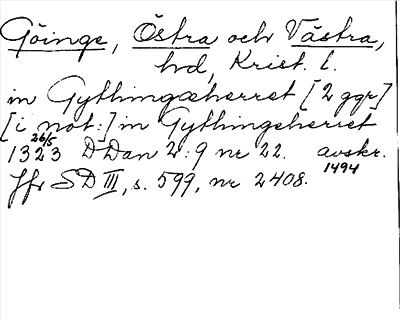 Göinge, Östra och Västra,
hd, Krist. l.
in Gythingæherret [2 ggr]
[i not:] in Gythingeheriet
1323 26/5 DDan 2:9 nr 22. avskr. 1494
Jfr SD III, s. 599, nr 2408.